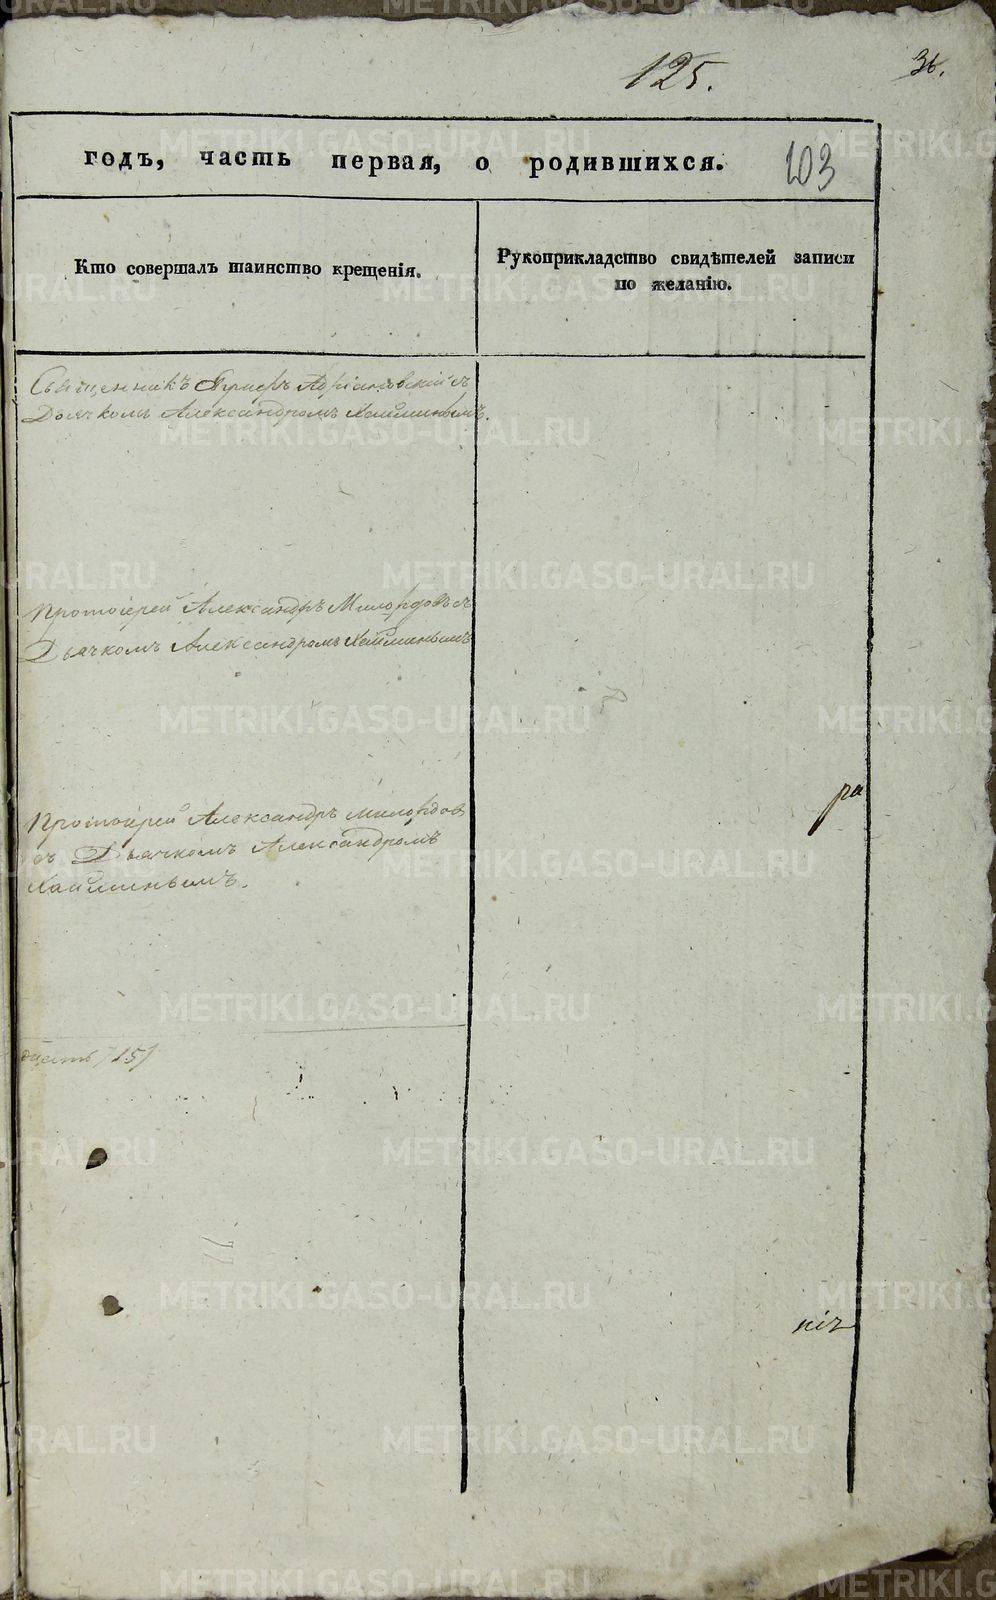 125.
36.
годъ, часть первая, о родившихся.
103
Кто совершалъ таинство крещенія.
Рукоприкладство свидѣтелей записи
по желанію.
Священникъ Адріановскій съ
Дьячкомъ Александромъ Хайминымъ.
Протоіерей Александръ Милордовъ съ
Дьячкомъ Александромъ Хайминымъ
ра
Протоіерей Александръ Милордов
съ Дьячкомъ Александромъ
Хайминымъ.
/15/
ніч
METRIKI.GASO-URAL.RU